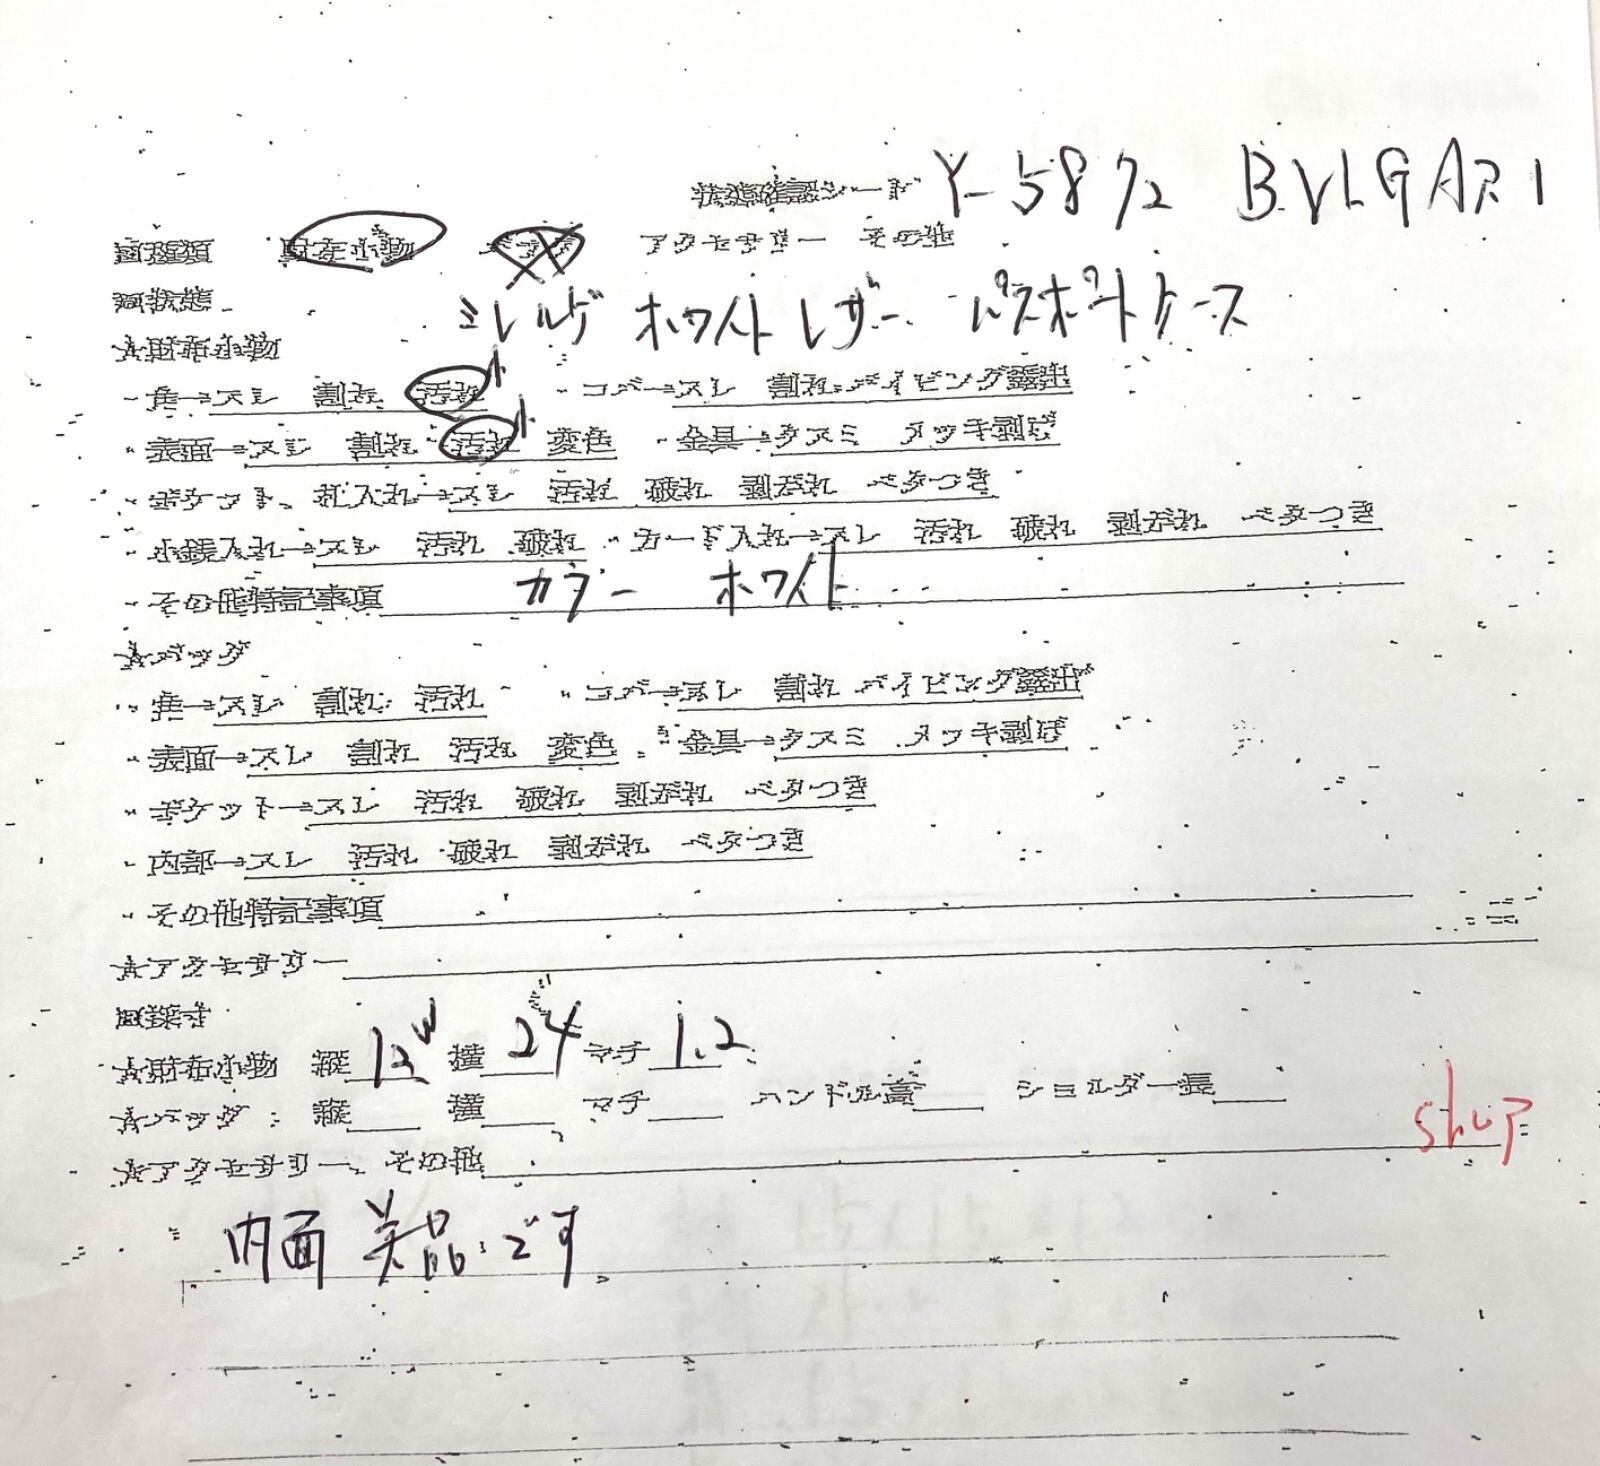 状態確認シート Y-5872 BVLGARI
□種類 財布小物 バッグ アクセサリー その他
□状態 ミレルゲ ホワイトレザー パスポートケース
☆財布小物
・角→スレ 割れ 汚れ 小 ・コバ→スレ 割れ パイピング露出
・表面→スレ 割れ 汚れ 小 変色 ・金具→クスミ メッキ剥げ
・ポケット、札入れ→スレ 汚れ 破れ 剥がれ ベタつき
・小銭入れ→スレ 汚れ 破れ ・カード入れ→スレ 汚れ 破れ 剥がれ ベタつき
・その他特記事項 カラー ホワイト
☆バッグ
・角→スレ 割れ 汚れ ・コバ→スレ 割れ パイピング露出
・表面→スレ 割れ 汚れ 変色 ・金具→クスミ メッキ剥げ
・ポケット→スレ 汚れ 破れ 剥がれ ベタつき
・内部→スレ 汚れ 破れ 剥がれ ベタつき
・その他特記事項
☆アクセサリー
□採寸
☆財布小物 縦 横 24 マチ 1.2
☆バッグ 縦 横 マチ ハンドル高 ショルダー長
☆アクセサリー、その他
shop
内面 美品です